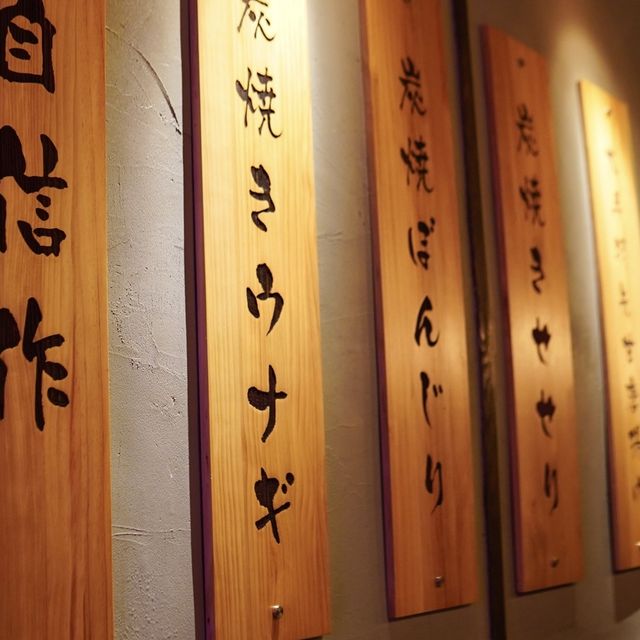 自信作
炭焼きウナギ
炭焼ぼんじり
炭焼きせせり